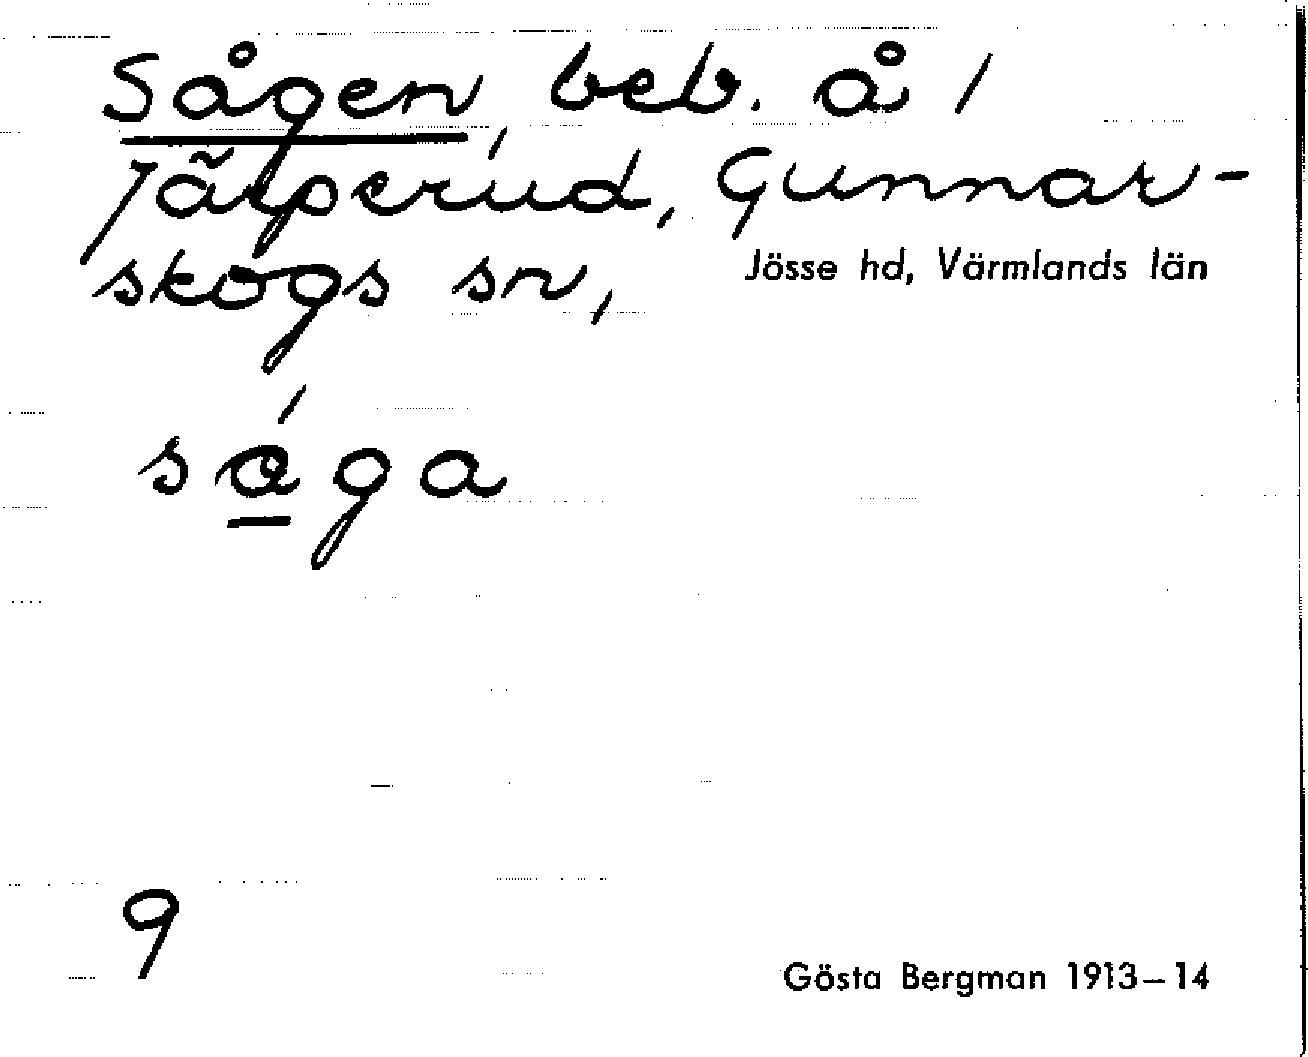 Sågen, beb. å 1
Järperud, Gunnar-
skogs sn, Jösse hd, Värmlands län
såga
9
Gösta Bergman 1913–14